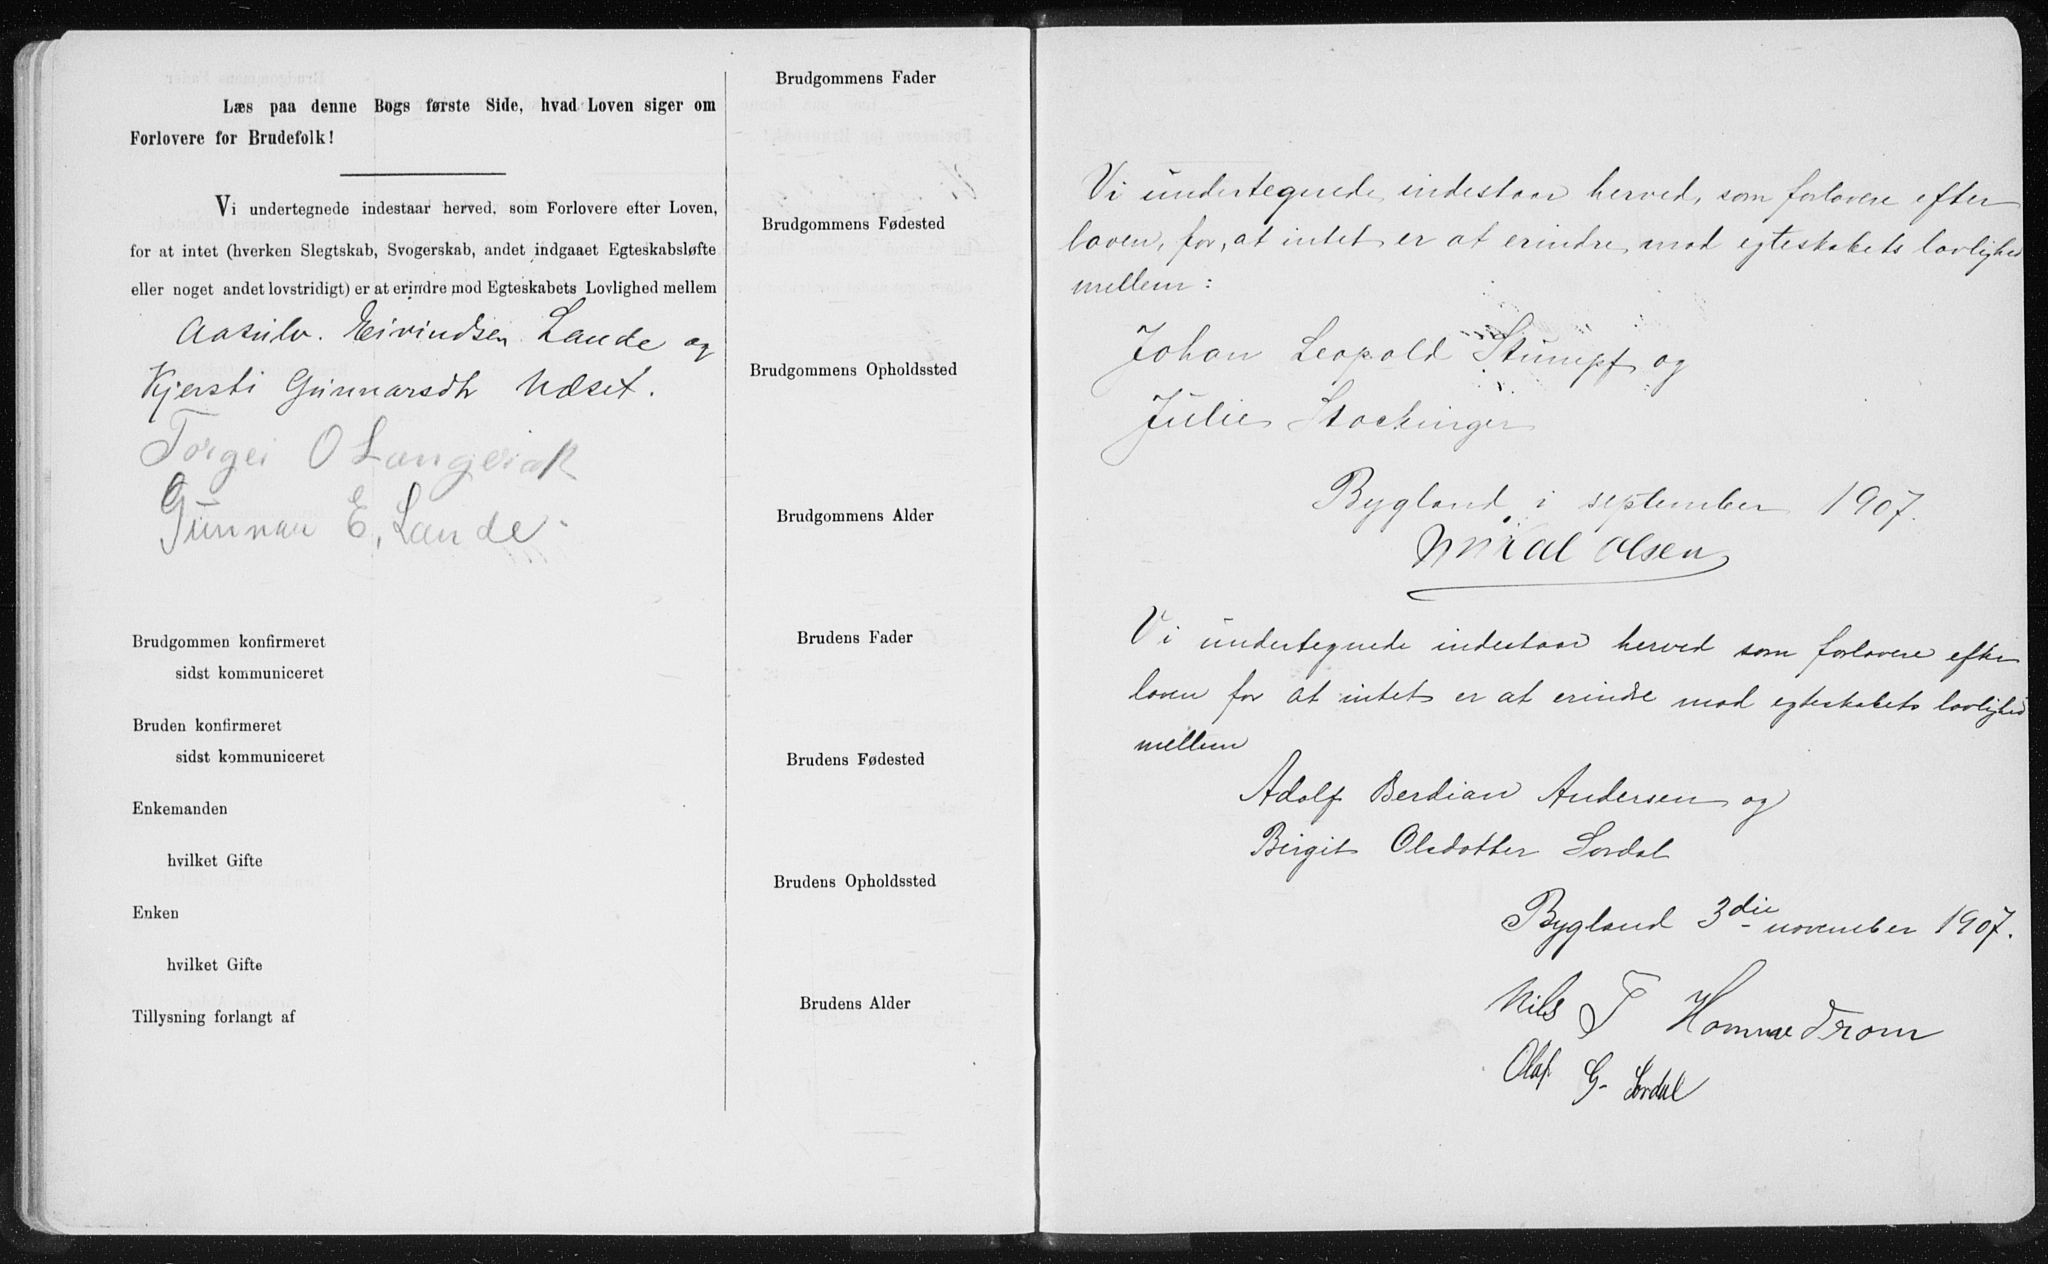 Læs paa denne Bogs første Side, hvad Loven siger om
Forlovere for Brudefolk!
Vi undertegnede indestaar herved, som Forlovere efter Loven,
for at intet (hverken Slegtskab, Svogerskab, andet indgaaet Egteskabsløfte
eller noget andet lovstridigt) er at erindre mod Egteskabets Lovlighed mellem
Aasulv. Eivindsen Lande og
Kjersti Gunnarsdtr Næset.
Torgei O Langeiak
Gunnar E. Lande.
Brudgommen konfirmeret
sidst kommuniceret
Bruden konfirmeret
sidst kommuniceret
Enkemanden
hvilket Gifte
Enken
hvilket Gifte
Tillysning forlangt af
Brudgommens Fader
Brudgommens Fødested
Brudgommens Opholdssted
Brudgommens Alder
Brudens Fader
Brudens Fødested
Brudens Opholdssted
Brudens Alder
Vi undertegnede indestaar herved, som forlovere efter
loven, for, at intet er at erindre mod egteskabets lovlighed
mellem:
Johan Leopold Stumpf og
Julie Stockinger
Bygland i september 1907.
Mikal Olsen
Vi undertegnede indestaar herved som forlovere efter
loven for at intet er at erindre mod egteskabets lovlighed
mellem
Adolf Berdian Andersen og
Birgit Olsdotter Sordal
Bygland 3die november 1907.
Nils T Homme drom
Olaf G. Sordal